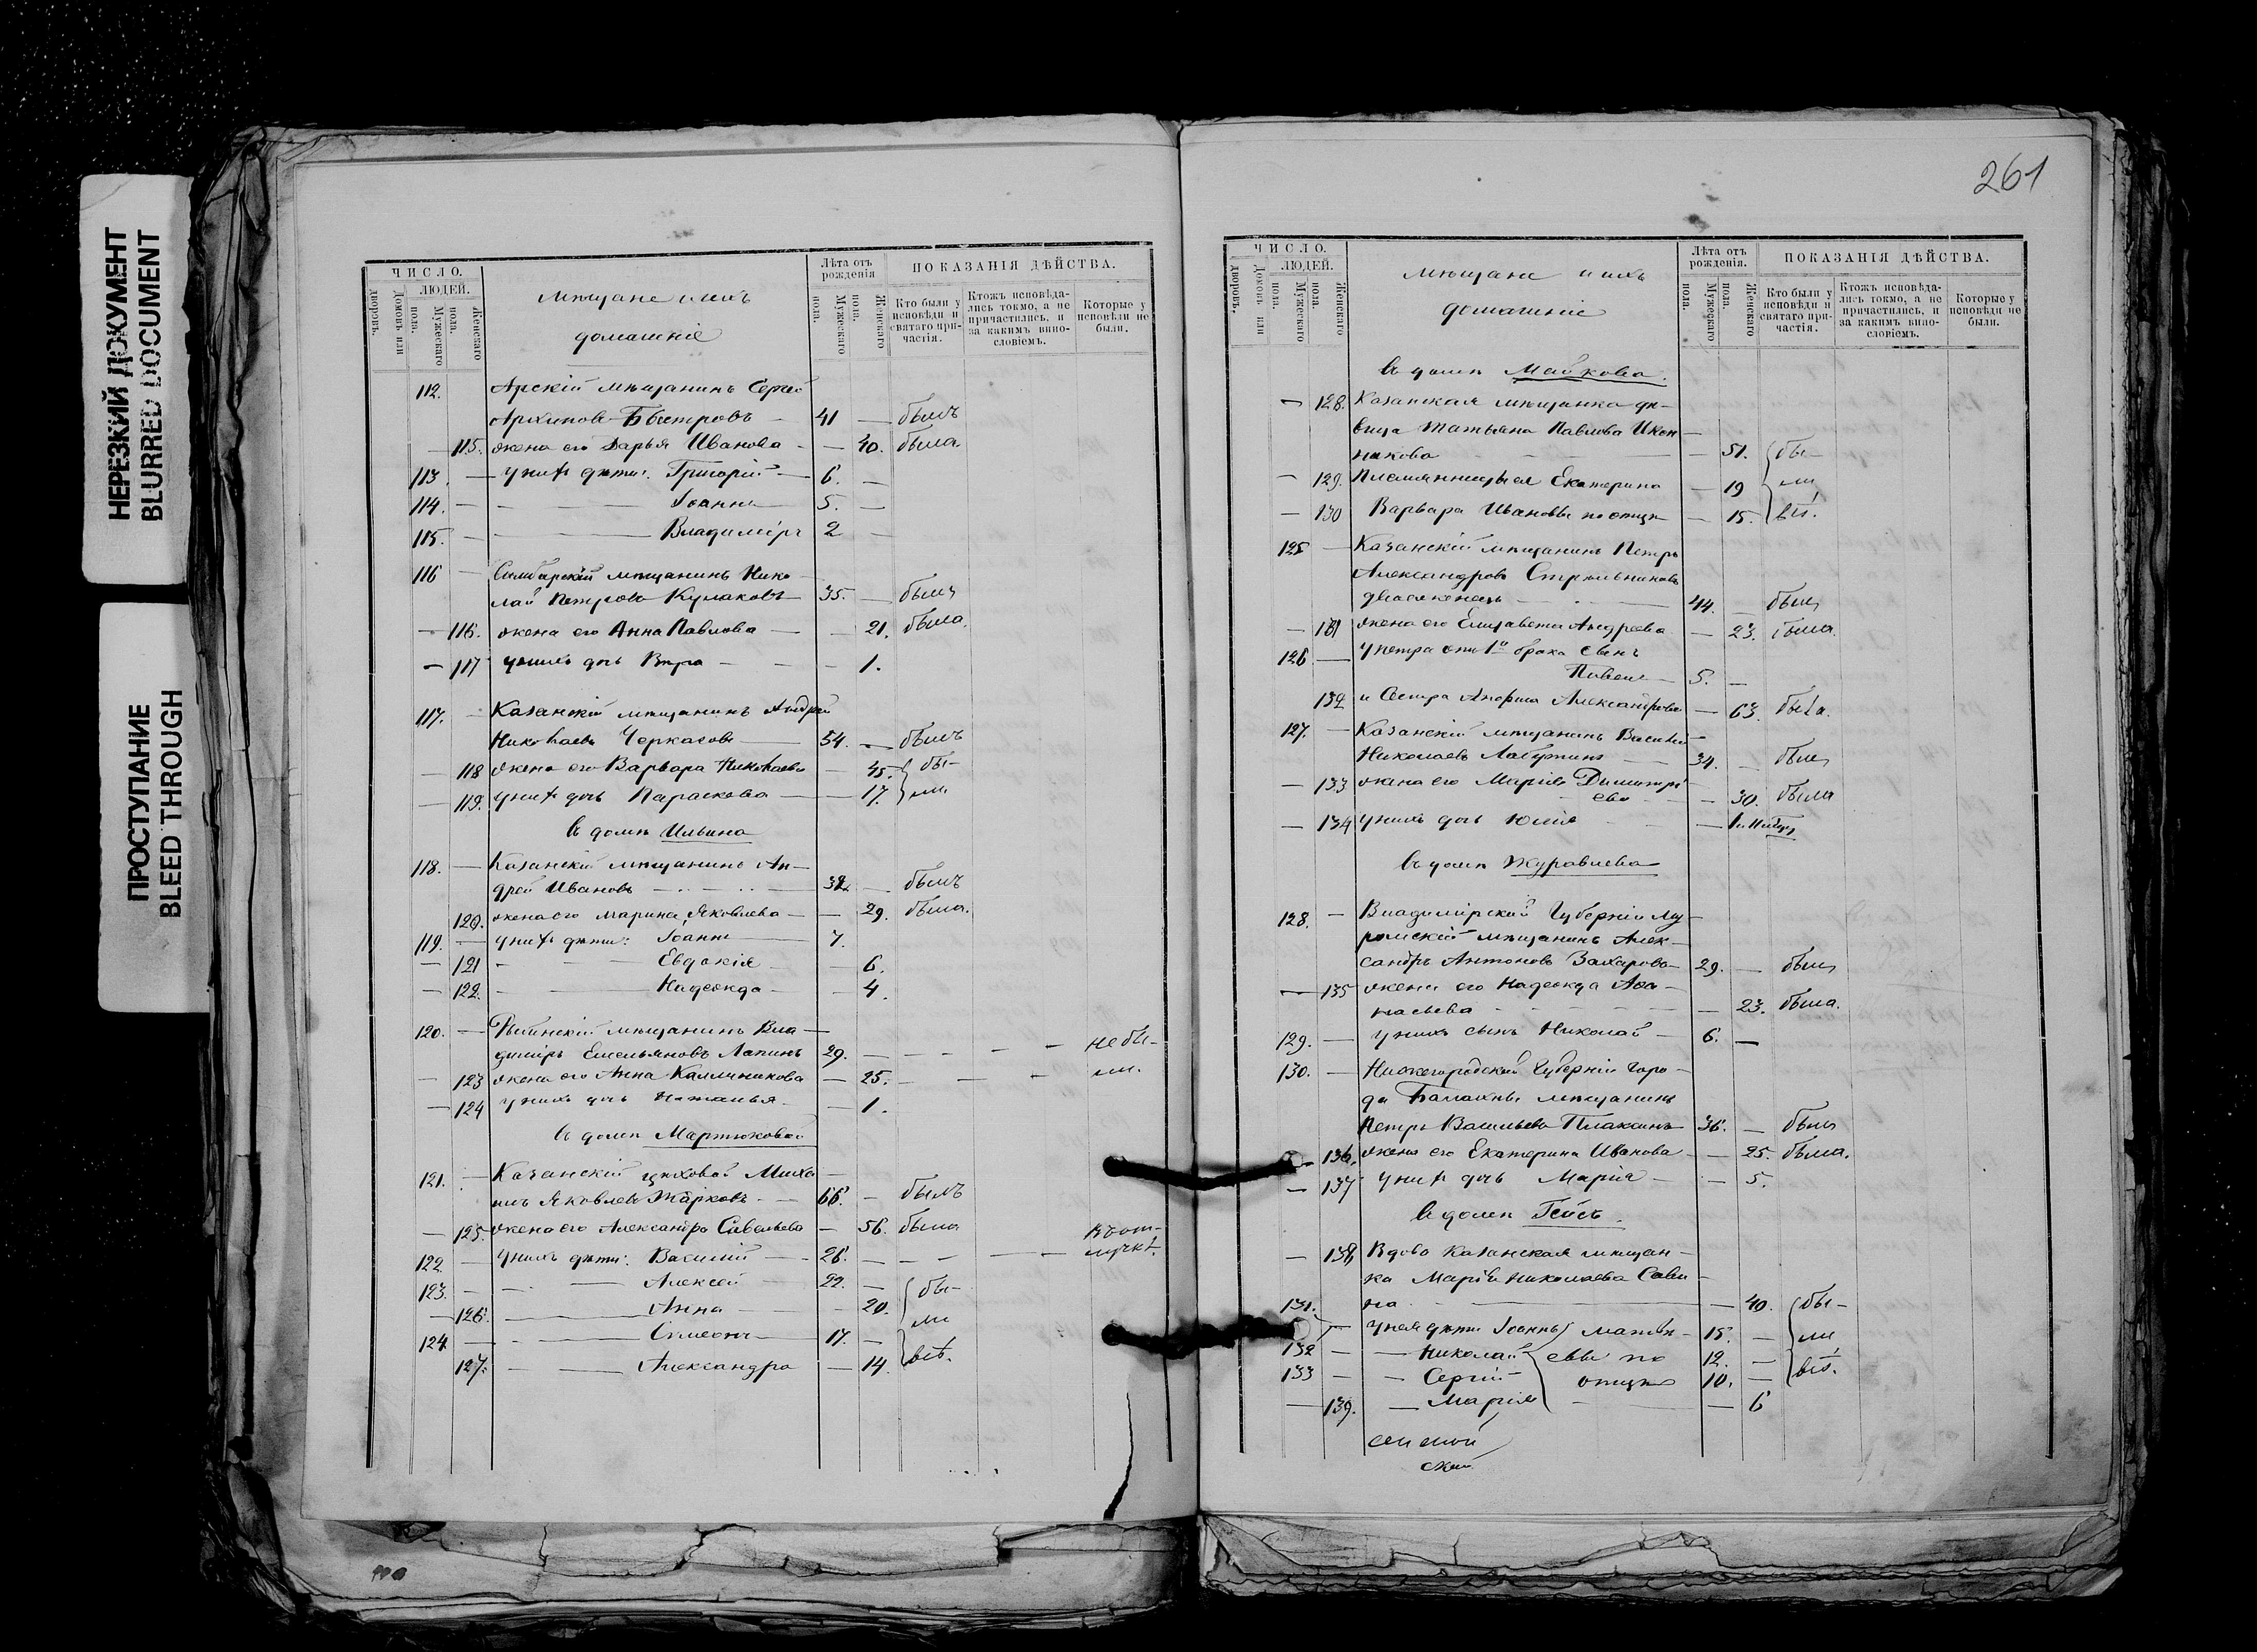 НЕРЕЗКИЙ ДОКУМЕНТ
BLURRED DOCUMENT
ПРОСТУПАНИЕ
BLEED THROUGH
ЧИСЛО.
ЛЮДЕЙ.
дворовъ.
Домовъ или
Мужескаго пола.
Женскаго пола.
Мѣщане и ихъ
домашніе
Лѣта отъ рожденія
Мужескаго пола.
Женскаго пола.
ПОКАЗАНІЯ ДѢЙСТВА.
Кто были у исповѣди и святаго причастія.
Ктожъ исповѣдались токмо, а не причастились, и за какимъ винословіемъ.
Которые у исповѣди не были.
112. Арскій мѣщанинъ Сергей
Архиповъ Быстровъ 41 — былъ
— 115. жена его Дарья Иванова — 40. была
113. — у нихъ дѣти: Григорій — 6. —
114. — Іоаннъ 5. —
115. — Владиміръ 2 —
116 — Симбирскій мѣщанинъ Нико-
лай Петровъ Кулаковъ 35. — былъ
— 116. жена его Анна Павлова — — 21. была.
— 117 у нихъ дочь Вѣра — — 1.
117. — Казанскій мѣщанинъ Андрей
Николаевъ Черкасовъ — 54. — былъ
— 118 жена его Варвара Николаева — 45. бы-
— 119. у нихъ дочь Параскева — — 17. ли
въ домѣ Ильина
118. — Казанскій мѣщанинъ Ан-
дрей Ивановъ — 32. — былъ
120. жена его Марина Яковлева — — 29. была.
119. — у нихъ дѣти: Іоаннъ 7.
— 121 — Евдокія — 6.
— 122. — Надежда — 4.
120. — Рыбинскій мѣщанинъ Вла-
диміръ Емельяновъ Лапинъ 29. — — — — не бы-
— 123 жена его Анна Каллиникова — 25. — — — ли.
— 124 у нихъ дочь Наталья — 1.
въ домѣ Мартюковой
121. — Казанскій цѣховой Миха-
илъ Яковлевъ Жарковъ — 66. — былъ
— 125. жена его Александра Савельева — 56. была
122. — у нихъ дѣти: Василій — 26. — — — — въ от-
лучкѣ.
123. — — Алексей 22. — бы-
— 126. — Анна — — 20. ли
124. — — Симеонъ 17. —
127. — — Александра — 14. всѣ.
261
ЧИСЛО.
ЛЮДЕЙ.
дворовъ.
Домовъ или
Мужескаго пола.
Женскаго пола.
Мѣщане и ихъ
домашніе
Лѣта отъ рожденія.
Мужескаго пола.
Женскаго пола.
ПОКАЗАНІЯ ДѢЙСТВА.
Кто были у исповѣди и святаго причастія.
Ктожъ исповѣдались токмо, а не причастились, и за какимъ винословіемъ.
Которые у исповѣди не были.
въ домѣ Майкова.
— 128. Казанская мѣщанка дѣ-
вица Татьяна Павлова Икон-
никова — 51. бы-
— 129. Племянницы ея Екатерина — 19 ли
— 130 Варвара Ивановы по отцѣ — 15. всѣ.
125 — Казанскій мѣщанинъ Петръ
Александровъ Стрѣльниковъ
двоеженецъ — 44. — былъ
— 131 жена его Елизавета Андреева — 23. была.
126 — у Петра отъ 1го брака сынъ
Павелъ 5. —
132 и сестра Анфиса Александрова — 63. была.
127. — Казанскій мѣщанинъ Василій
Николаевъ Лабутинъ — 34. — былъ
— 133 жена его Марія Димитрі-
ева — — 30. была
— 134 у нихъ дочь Юлія —
въ домѣ Журавлева
128. — Владимірской Губерніи Му-
ромскій мѣщанинъ Алек-
сандръ Антоновъ Захаровъ 29. — былъ
— 135 жена его Надежда Аѳа-
насьева — 23. была.
129. — у нихъ сынъ Николай — 6. —
130. — Нижегородской Губерніи горо-
да Балахны мѣщанинъ
Петръ Васильевъ Плаксинъ 36. — былъ
— 136. жена его Екатерина Иванова — 25. была.
— 137 у нихъ дочь Марія — — 5.
въ домѣ Гейсъ.
— 138 Вдова Казанская мѣщан-
ка Марія Николаева Сави-
на — 40. бы-
131. — у нея дѣти Іоаннъ Матвѣ- 15. — ли
132 — — Николай евы по 12. —
133 — — Сергій отцѣ 10. — всѣ.
— 139. — Марія — — 6